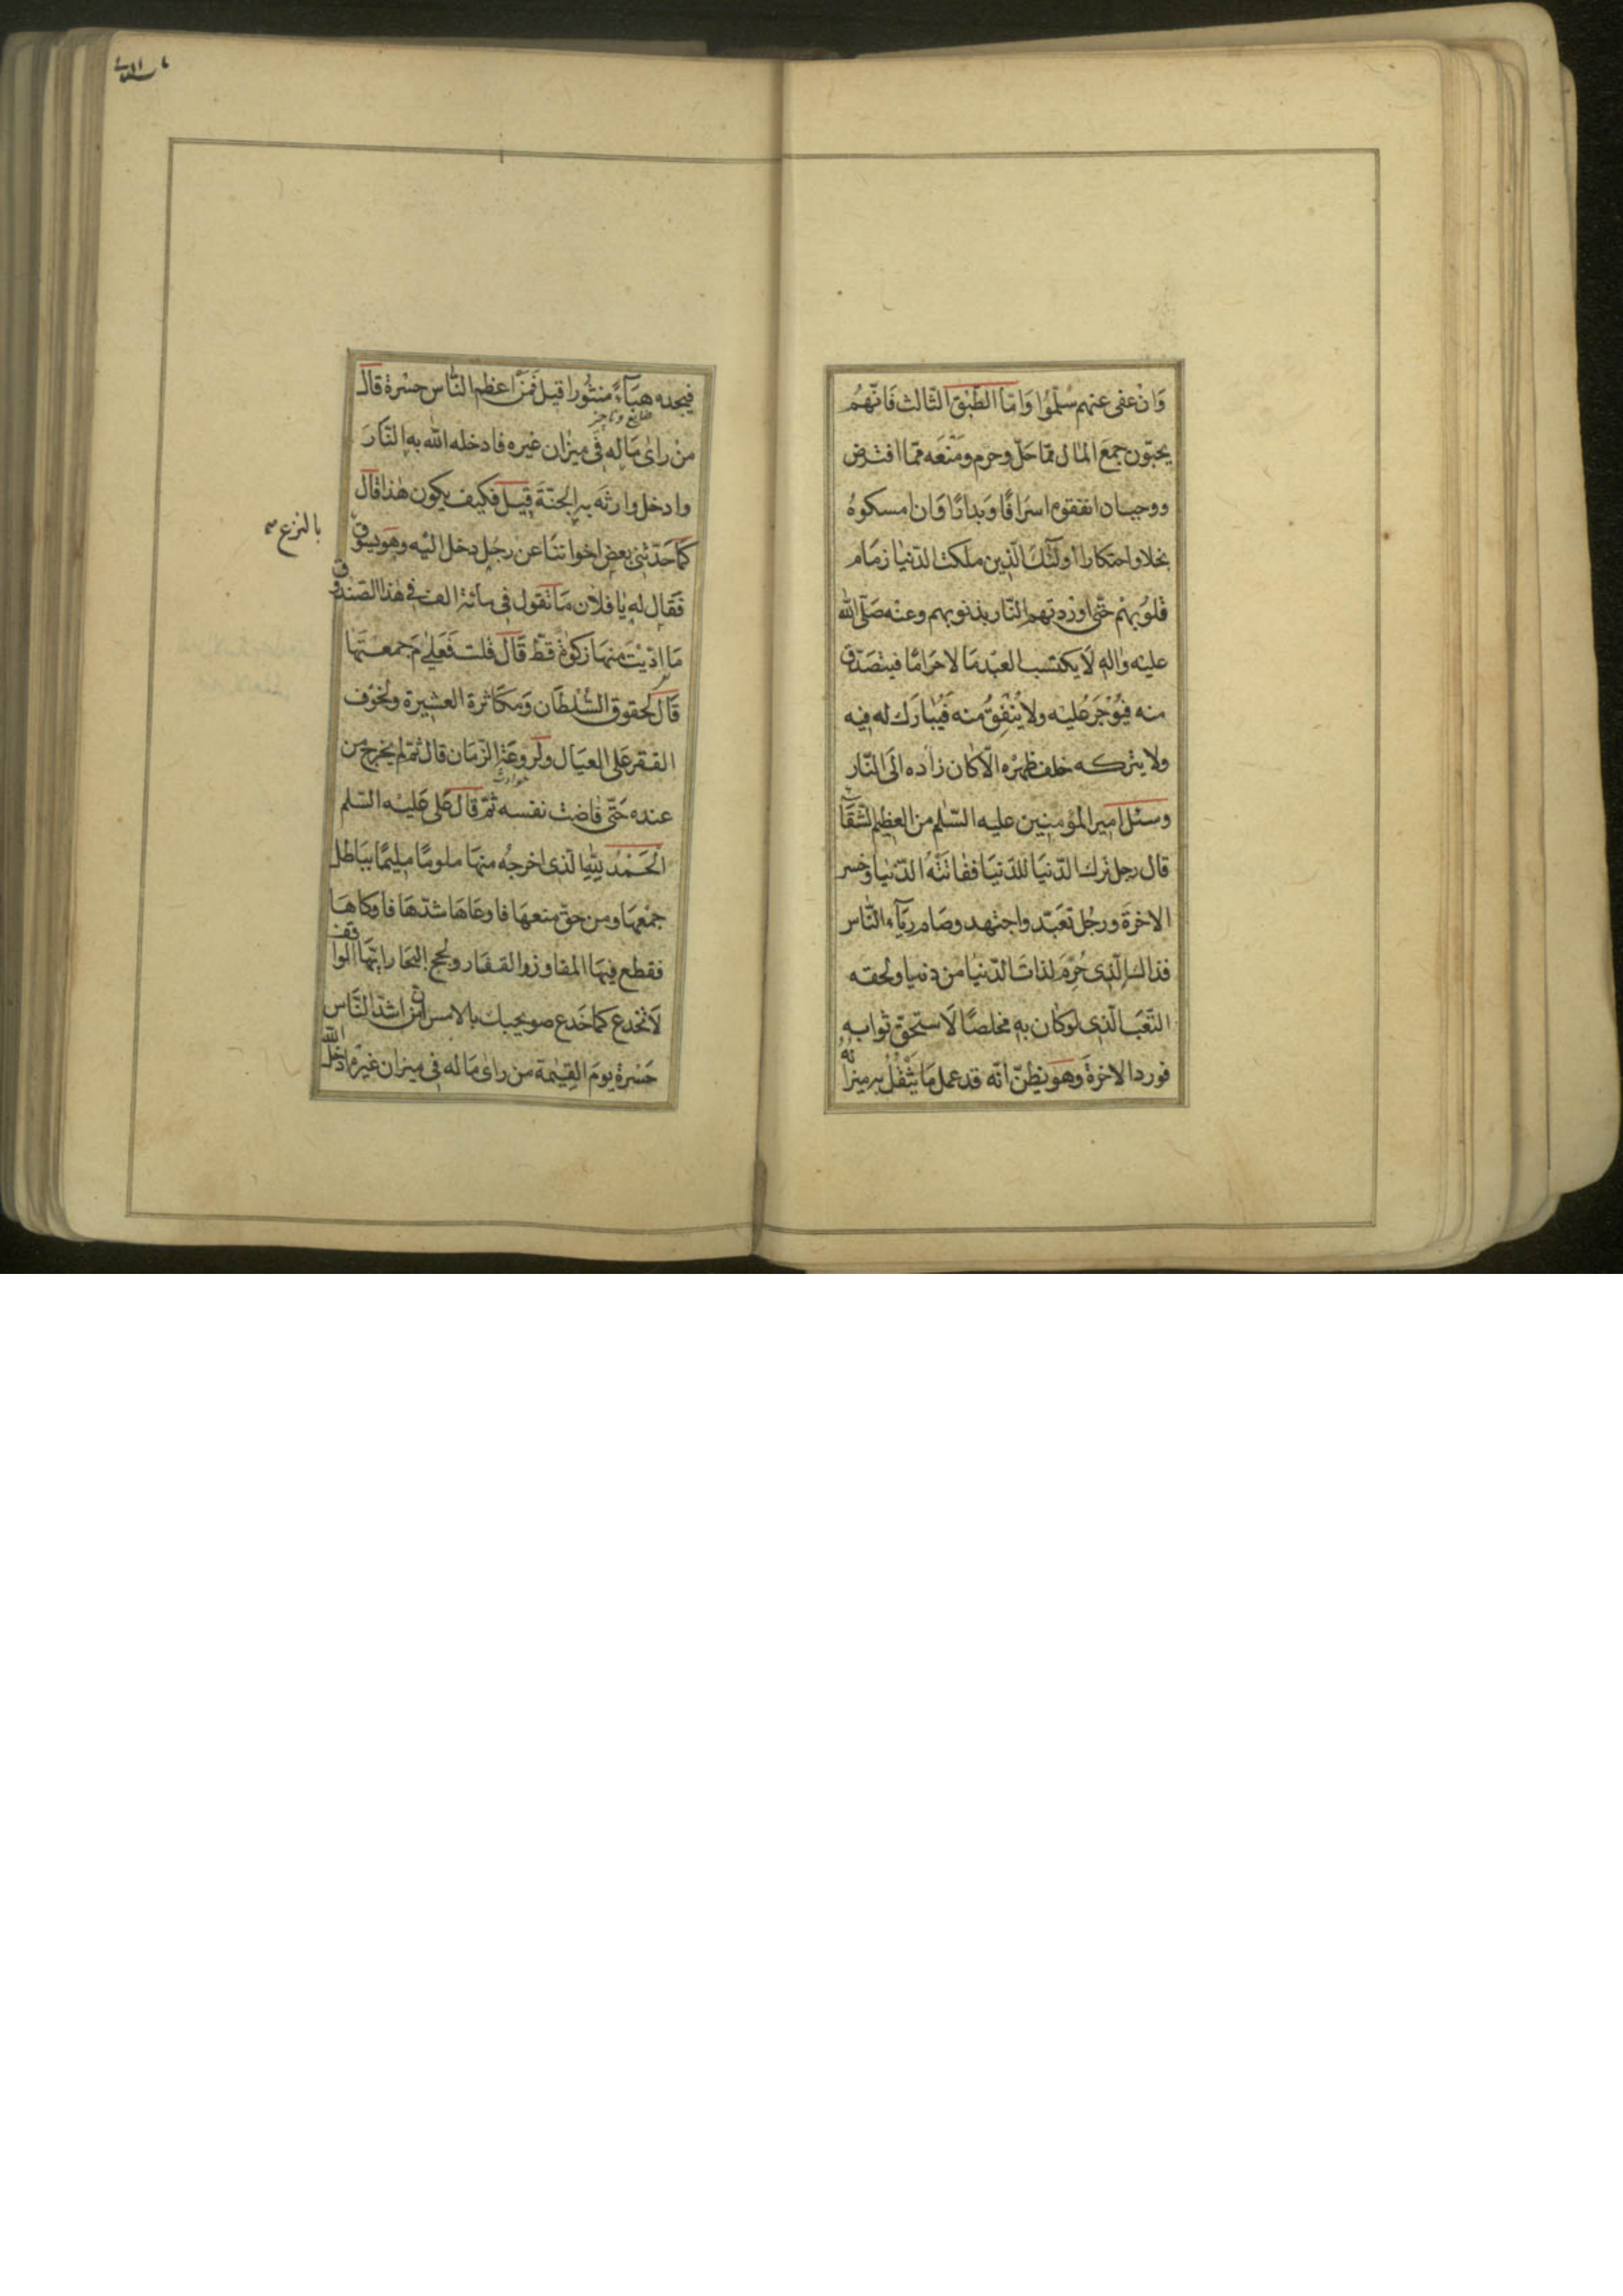 وَانْ عفى عنهم سُلِّموُا وَامّا الطّبق الثّالث فَانّهُم
يحبّون جمعَ المال ممّا حَلّ وحرم ومَنْعَه ممّا افترض
ووجب ان انفقوه اسرَافًا وَبِدارًا وَان امسكوهُ
بخلا واحتكارا اولٰئك الّذين ملكت الدّنيا زمَام
قلوُبهمْ حَتّى اوْردتهم النّار بذنوبهم وعنْه صَلّى الله
عليْه واٰلهِ لَا يكتسب العبْد مَا لا حَرامًا فيتصَدّق
منه فيُوْجَرَ عليْه ولا يُنْفِقُ منه فَيُبَارَك له فيه
ولا يتركه خلف ظهْره الّا كان زاده الَى النّار
وسئل امير المؤمنين عليه السّلم من العظيم الشّقآء
قال رجل ترك الدّنيَا للدّنيَا ففاتَتْهُ الدّنيا وخسر
الاخرَة ورجُل تعَبّد واجتهد وصَام ريَآء النّاس
فذالك الّذى حُرِّمَ لذاتَ الدّنيا من دنيا ولحقه
التّعَب الّذى لوكان بهِ مخلصًا لَاستحقّ ثوابه
فورد الاخرةَ وهوَ يَظنّ انّه قد عمل مَا يَثْقُلُ به ميزانُهُ
فيجده هبَآءً منثُورا قيل فَمَنْ اعظم النّاس حسْرة قال
منْ راى مَاله فى ميزان غيره فادخله الله به النّارَ
وادخل وارثَه به الجنّةَ قِيل فكيف يكون هٰذا قال
كمَا حَدّثنى بعض اخواننا عن رجُل دخل اليْه وهوَ يسوق
بالنزع
فَقال له يا فلان مَا تقول فى مائة الف فى هٰذا الصّندوق
مَا ادّيْت منهَا زكوة قطّ قَالَ قلت فَعَلٰى مَ جمعْتَهَا
قَالَ لحقوق السُّلطَان وَمكَاثرة العشيرة ولخوْف
الفقر عَلى العيَال ولروعَة الزّمَان قال ثمّ لم يخرج من
عنده حَتّى فاضت نفسه ثمّ قال عَلى عَليْه السّلم
الْحَمْدُ لِلّٰهِ الّذى اخرجهُ منهَا ملومًا مليمًا ببَاطل
جمْعهَا ومن حقّ منعهَا فاوعَاهَا شدّهَا فاوكاهَا
فقطع فيهَا المفاوز والقفار ولجج البحَار ايّهَا الواقف
لَا تُخْدع كمَا خَدع صويحبك بالامس انّ من اشدّ النّاس
حَسْرةً يومَ القِيٰمة من راى مَاله فى ميزان غيره ادخل الله